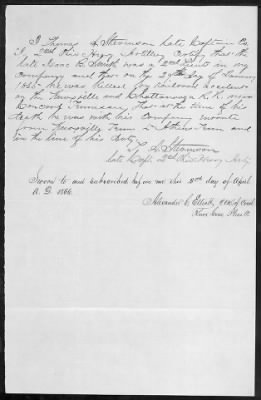 I Thomas A Stevenson late Captain Co
I, 2nd Ohio Hvy Artillery Certify that the
late Isaac B. Smith was a 2nd Lieut in my
Company and that on the 29th day of January
1865 he was killed by Railroad accident
on the Knoxville and Chattanooga R.R. near
Concord Tennessee, that at the time of his
death he was with his Company enroute
from Knoxville Tenn to Athens Tenn and
in the line of his duty
T. A. Stevenson
late Capt. 2nd Arty
Sworn to and subscribed before me this day of April
A. D. 1866.
Alexander C. Elliott, Clk of Court